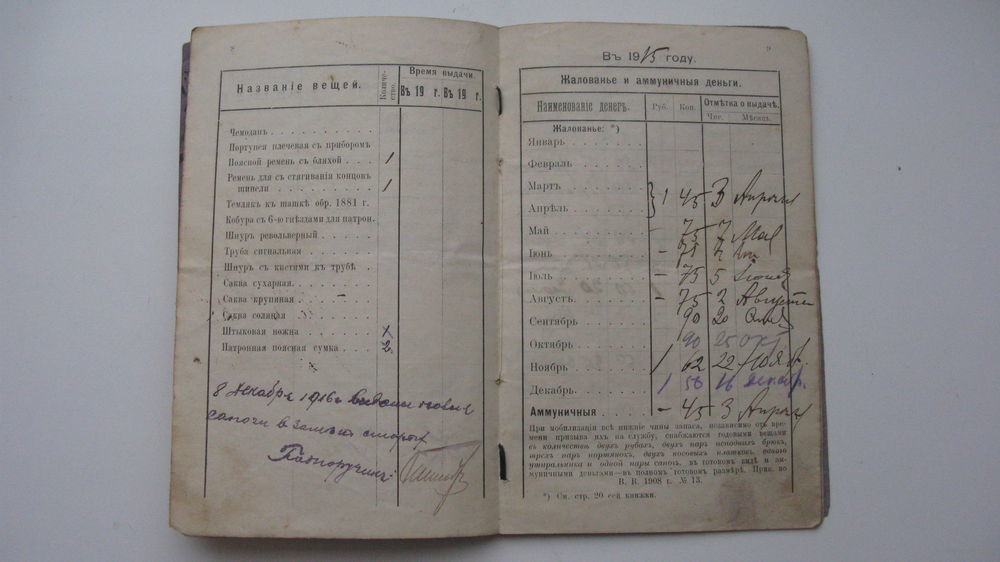 8
Названіе вещей.
Количе-
ство.
Время выдачи.
Въ 19 г.
Въ 19 г.
Чемоданъ
Портупея плечевая съ приборомъ
Поясной ремень съ бляхой 1
Ремень для съ стягиванія концовъ
шинели 1
Темлякъ къ шашкѣ обр. 1881 г.
Кобура съ 6-ю гнѣздами для патрон.
Шнуръ револьверный
Труба сигнальная
Шнуръ съ кистями къ трубѣ
Саква сухарная
Саква крупяная
Саква соляная
Штыковая ножна 1
Патронная поясная сумка 2
8 Декабря 1916 г выданы новыя
сапоги в замѣн старых
Подпоручикъ
9
Въ 1915 году.
Жалованье и аммуничныя деньги.
Наименованіе денегъ. Руб. Коп. Отмѣтка о выдачѣ.
Чис. Мѣсяцъ.
Жалованье: *)
Январь
Февраль
Мартъ
Апрѣль 1 45 3 Апрѣля
Май 75 7 Мая
Іюнь - 75 2
Іюль - 75 5
Августъ - 75 2 Августа
Сентябрь 90 20
Октябрь 90 25 окт
Ноябрь 1 62 22 Нояб.
Декабрь 1 58 16 декабр.
Аммуничныя - 45 3 Апрѣля
При мобилизаціи всѣ нижніе чины запаса, независимо отъ вре-
мени призыва ихъ на службу, снабжаются годовыми вещами
въ количествѣ двухъ рубахъ, двухъ паръ исподнихъ брюкъ,
трехъ паръ портянокъ, двухъ носовыхъ платковъ, одного
утиральника и одной пары сапогъ, въ готовомъ видѣ и ам-
муничными деньгами—въ полномъ готовомъ размѣрѣ. Прик. по
В. В. 1908 г. № 13.
*) См. стр. 20 сей книжки.